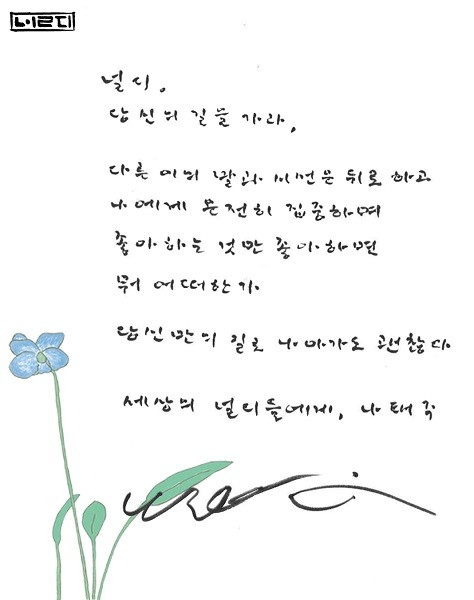 너르디
널디,
당신의 길을 가라,
다른 이의 말과 시선은 뒤로 하고
나에게 온전히 집중하며
좋아하는 것만 좋아하면
뭐 어떠한가
당신만의 길로 나아가도 괜찮다
세상의 널디들에게, 나태주